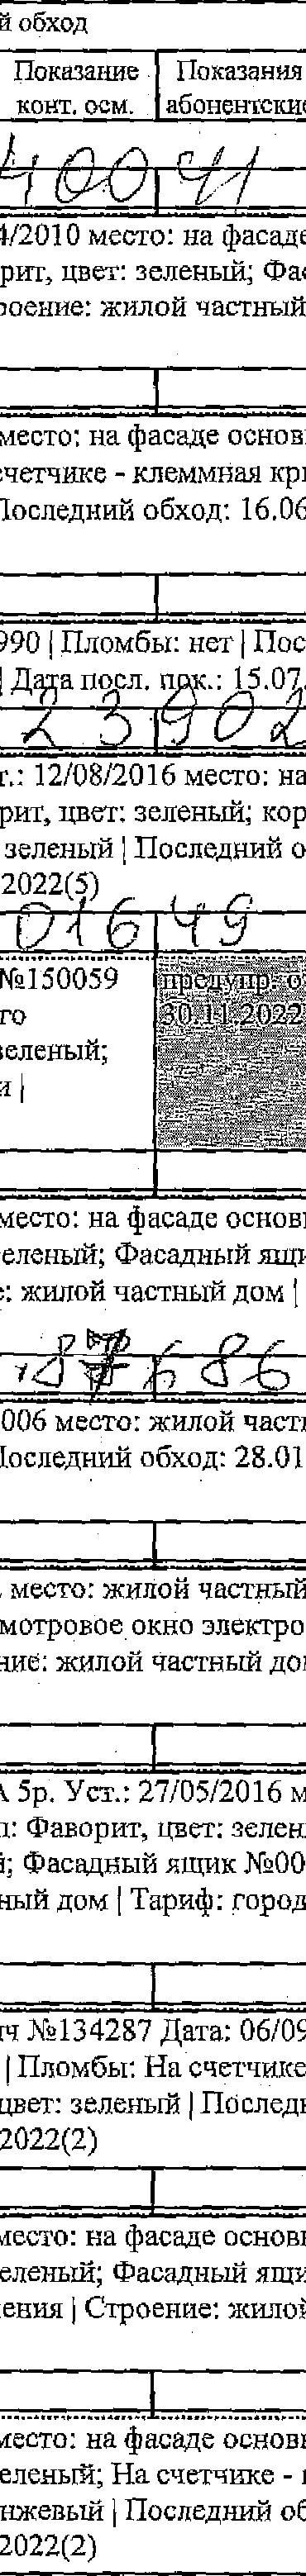 й обход
Показание Показания
конт. осм. абонентские
40041
4/2010 место: на фасаде
рит, цвет: зеленый; Фас
роение: жилой частный
место: на фасаде основ
счетчике - клеммная кр
Последний обход: 16.06
990 | Пломбы: нет | Пос
| Дата посл. пок.: 15.07.
23902
т.: 12/08/2016 место: на
рит, цвет: зеленый; кор
зеленый | Последний о
2022(5)
01649
№150059 предупр. о
го 30.11.2022
зеленый;
и |
место: на фасаде основ
еленый; Фасадный ящи
: жилой частный дом |
686
006 место: жилой част
Последний обход: 28.01
место: жилой частный
мотровое окно электро
ние: жилой частный до
А 5р. Уст.: 27/05/2016 м
п: Фаворит, цвет: зелен
й; Фасадный ящик №00
ный дом | Тариф: город
ич №134287 Дата: 06/09
| Пломбы: На счетчике
цвет: зеленый | Последн
2022(2)
место: на фасаде основ
еленый; Фасадный ящи
ения | Строение: жилой
место: на фасаде основ
еленый; На счетчике -
нжевый | Последний об
2022(2)